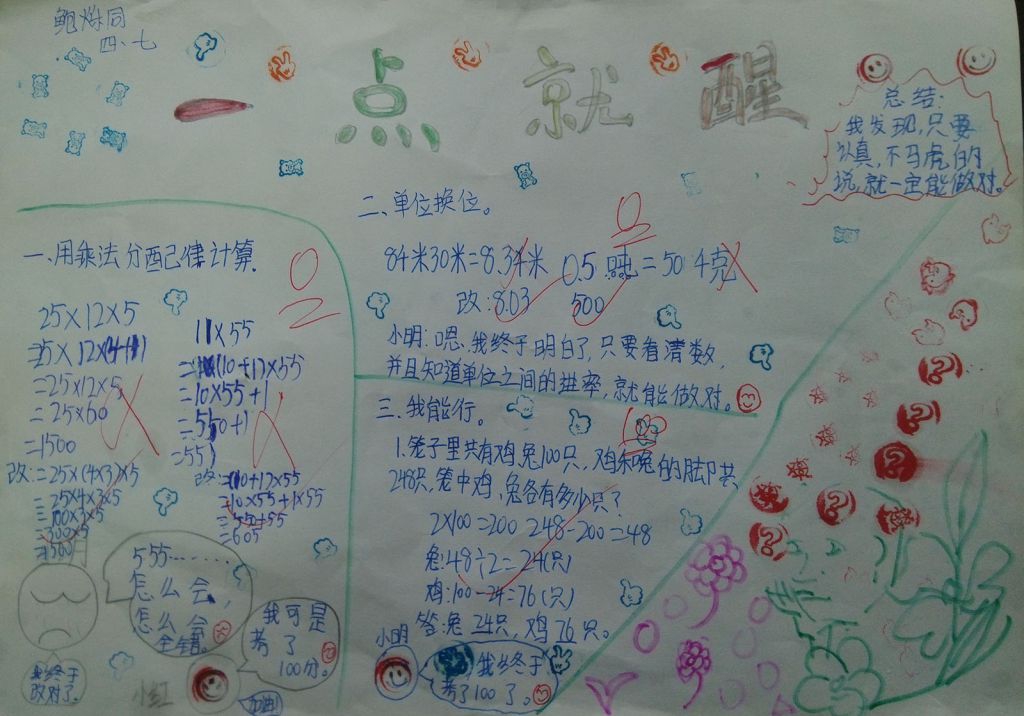 鲍烨同
四、七
一点就醒
总结:
我发现,只要
认真,不马虎的
说,就一定能做对。
一、用乘法分配律计算.
25×12×5
=25×12×5
=25×60
=1500
改:=25×(4×3)×5
=25×4×3×5
=100×3×5
=300×5
=1500
11×55
=(10+1)×55
=10×55+1
=550+1
=551
改:=(10+1)×55
=10×55+1×55
=550+55
=605
555……
怎么会,
怎么会
全错。
我终于
改对了。
小红
我可是
考了
100分。
加油!
二、单位换位。
84米30米=8.34米 0.5吨=504克
改:8.03 500
小明:嗯,我终于明白了,只要看清数,
并且知道单位之间的进率,就能做对。
三、我能行。
1.笼子里共有鸡兔100只,鸡和兔的脚共
248只,笼中鸡,兔各有多少只?
2×100=200 248-200=48
兔:48÷2=24(只)
鸡:100-24=76(只)
答:兔24只,鸡76只。
小明
我终于
考了100了。